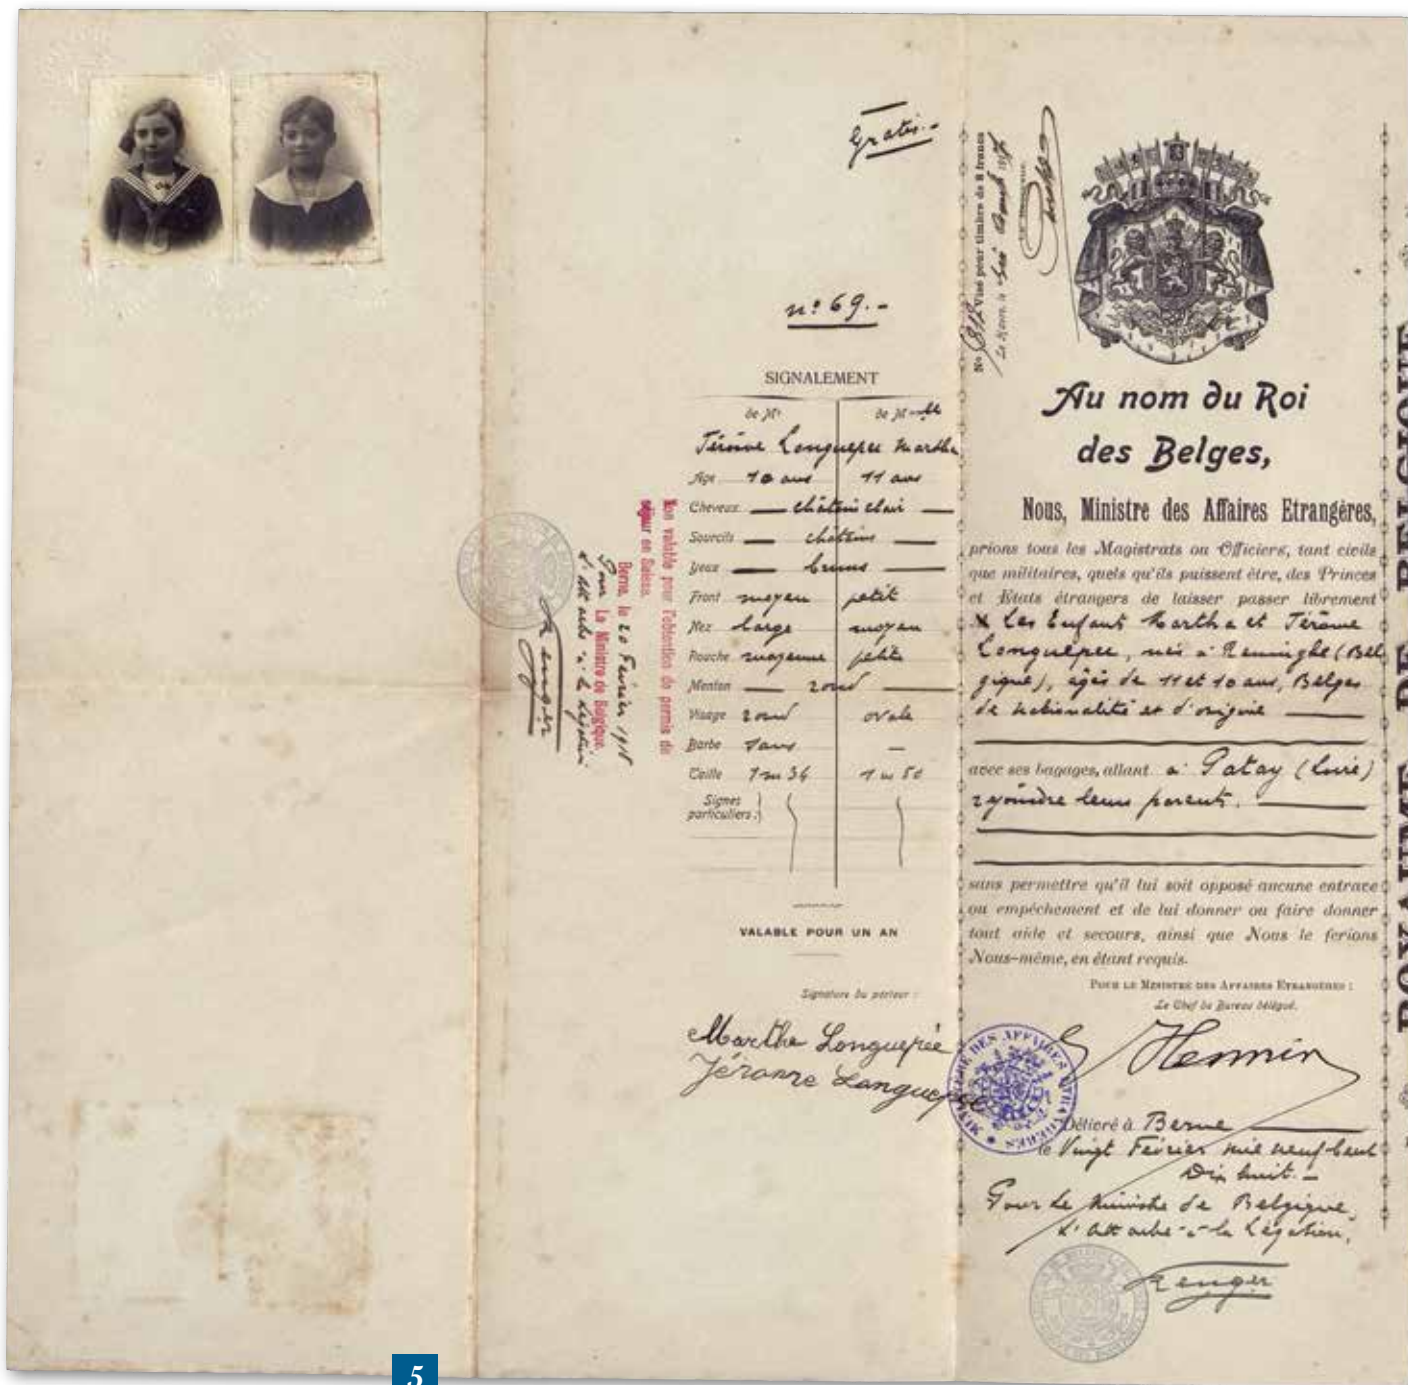 Gratis.-
nº 69.-
SIGNALEMENT
de Mr de Melle
Jérôme Longuepee Martha
Age 10 ans 11 ans
Cheveux châtain clair
Sourcils châtains
Yeux bruns
Front moyen petit
Nez large moyen
Bouche moyenne petite
Menton rond
Visage rond ovale
Barbe sans —
Taille 1m 36 1m 50
Signes
particuliers :
VALABLE POUR UN AN
Signature du porteur :
Marthe Longuepée
Jérome Longuepée
Non valable pour l'obtention de permis de
séjour en Suisse.
Berne, le 20 Février 1918
Pour Le Ministre de Belgique,
L'attaché à la Légation
No 312 Visé pour timbre de 8 francs
Au nom du Roi
des Belges,
Nous, Ministre des Affaires Etrangères,
prions tous les Magistrats ou Officiers, tant civils
que militaires, quels qu'ils puissent être, des Princes
et Etats étrangers de laisser passer librement
Les Enfants Martha et Jérôme
Longuépee, nés à Reninghe (Bel
gique), agés de 11 et 10 ans, Belges
de nationalité et d'origine
avec ses bagages, allant à Patay (Loire)
rejoindre leurs parents.
sans permettre qu'il lui soit opposé aucune entrave
ou empêchement et de lui donner ou faire donner
tout aide et secours, ainsi que Nous le ferions
Nous-même, en étant requis.
POUR LE MINISTRE DES AFFAIRES ETRANGÈRES :
Le Chef de Bureau délégué.
MINISTÈRE DES AFFAIRES ETRANGÈRES
Délivré à Berne
le Vingt Février mil neuf Cent
Dix huit.-
Pour Le Ministre de Belgique,
L'attaché à la Légation,
ROYAUME DE BELGIQUE
5